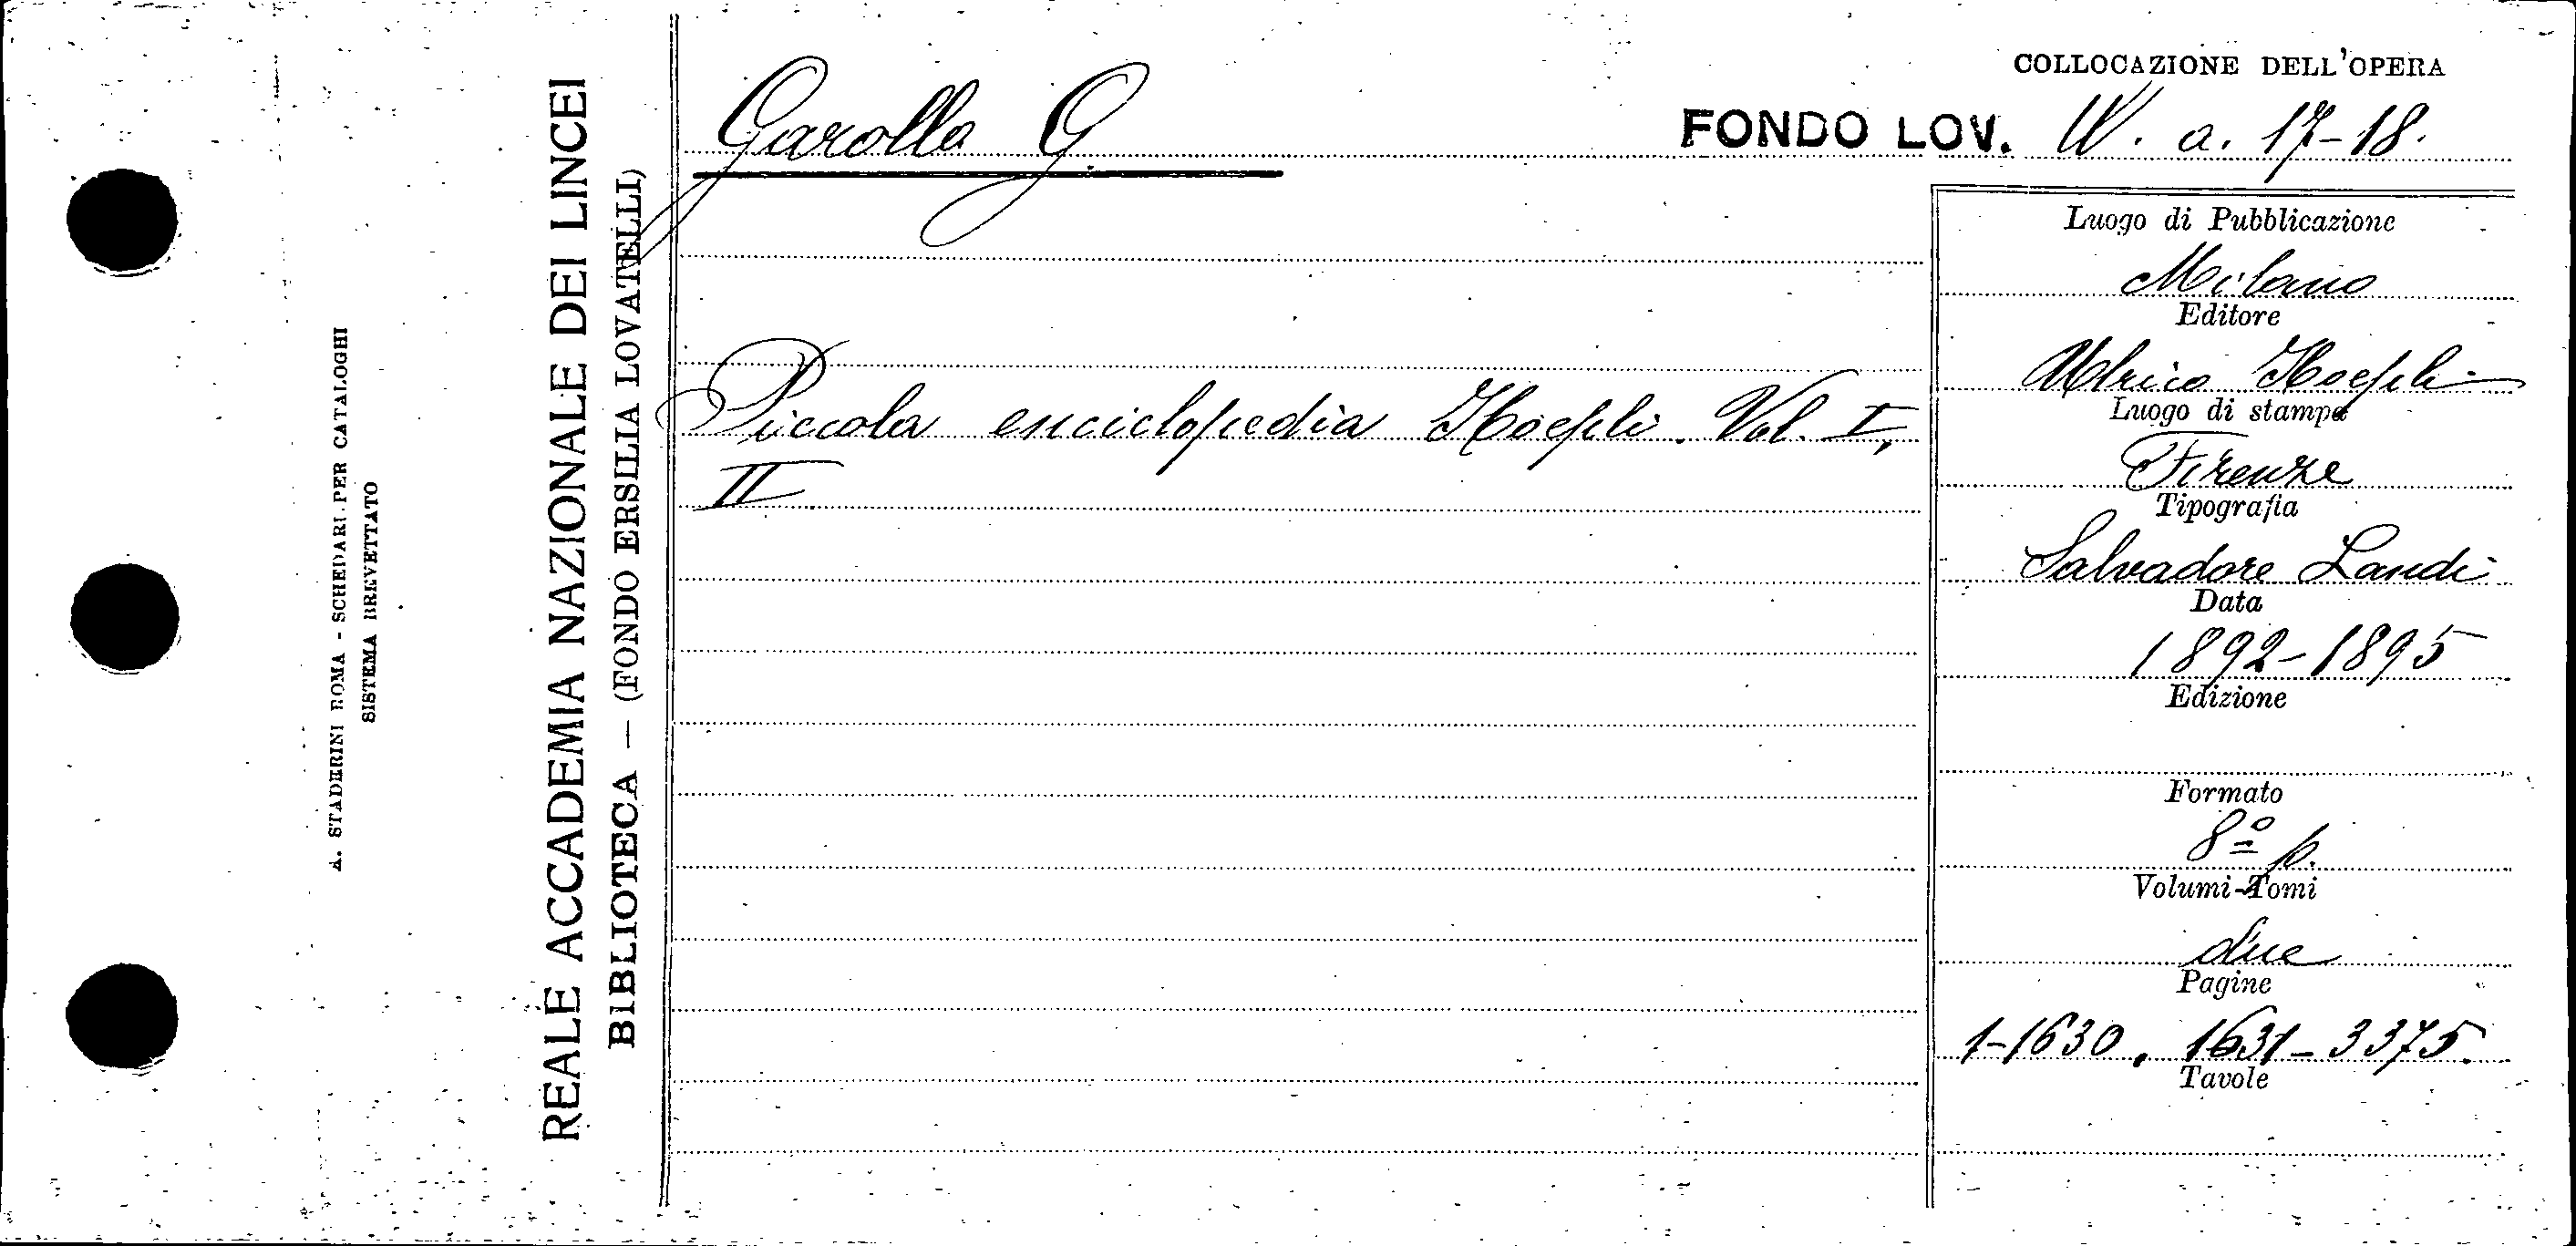 A. STADERINI ROMA - SCHEDARI PER CATALOGHI
SISTEMA BREVETTATO
REALE ACCADEMIA NAZIONALE DEI LINCEI
BIBLIOTECA — (FONDO ERSILIA LOVATELLI)
Garollo G.
COLLOCAZIONE DELL'OPERA
FONDO LOV. IV. a. 17-18.
Piccola enciclopedia Hoepli. Vol. I,
II
Luogo di Pubblicazione
Milano
Editore
Ulrico Hoepli
Luogo di stampa
Firenze
Tipografia
Salvadore Landi
Data
1892-1895
Edizione
Formato
8º p.
Volumi-Tomi
due
Pagine
1-1630, 1631-3375.
Tavole